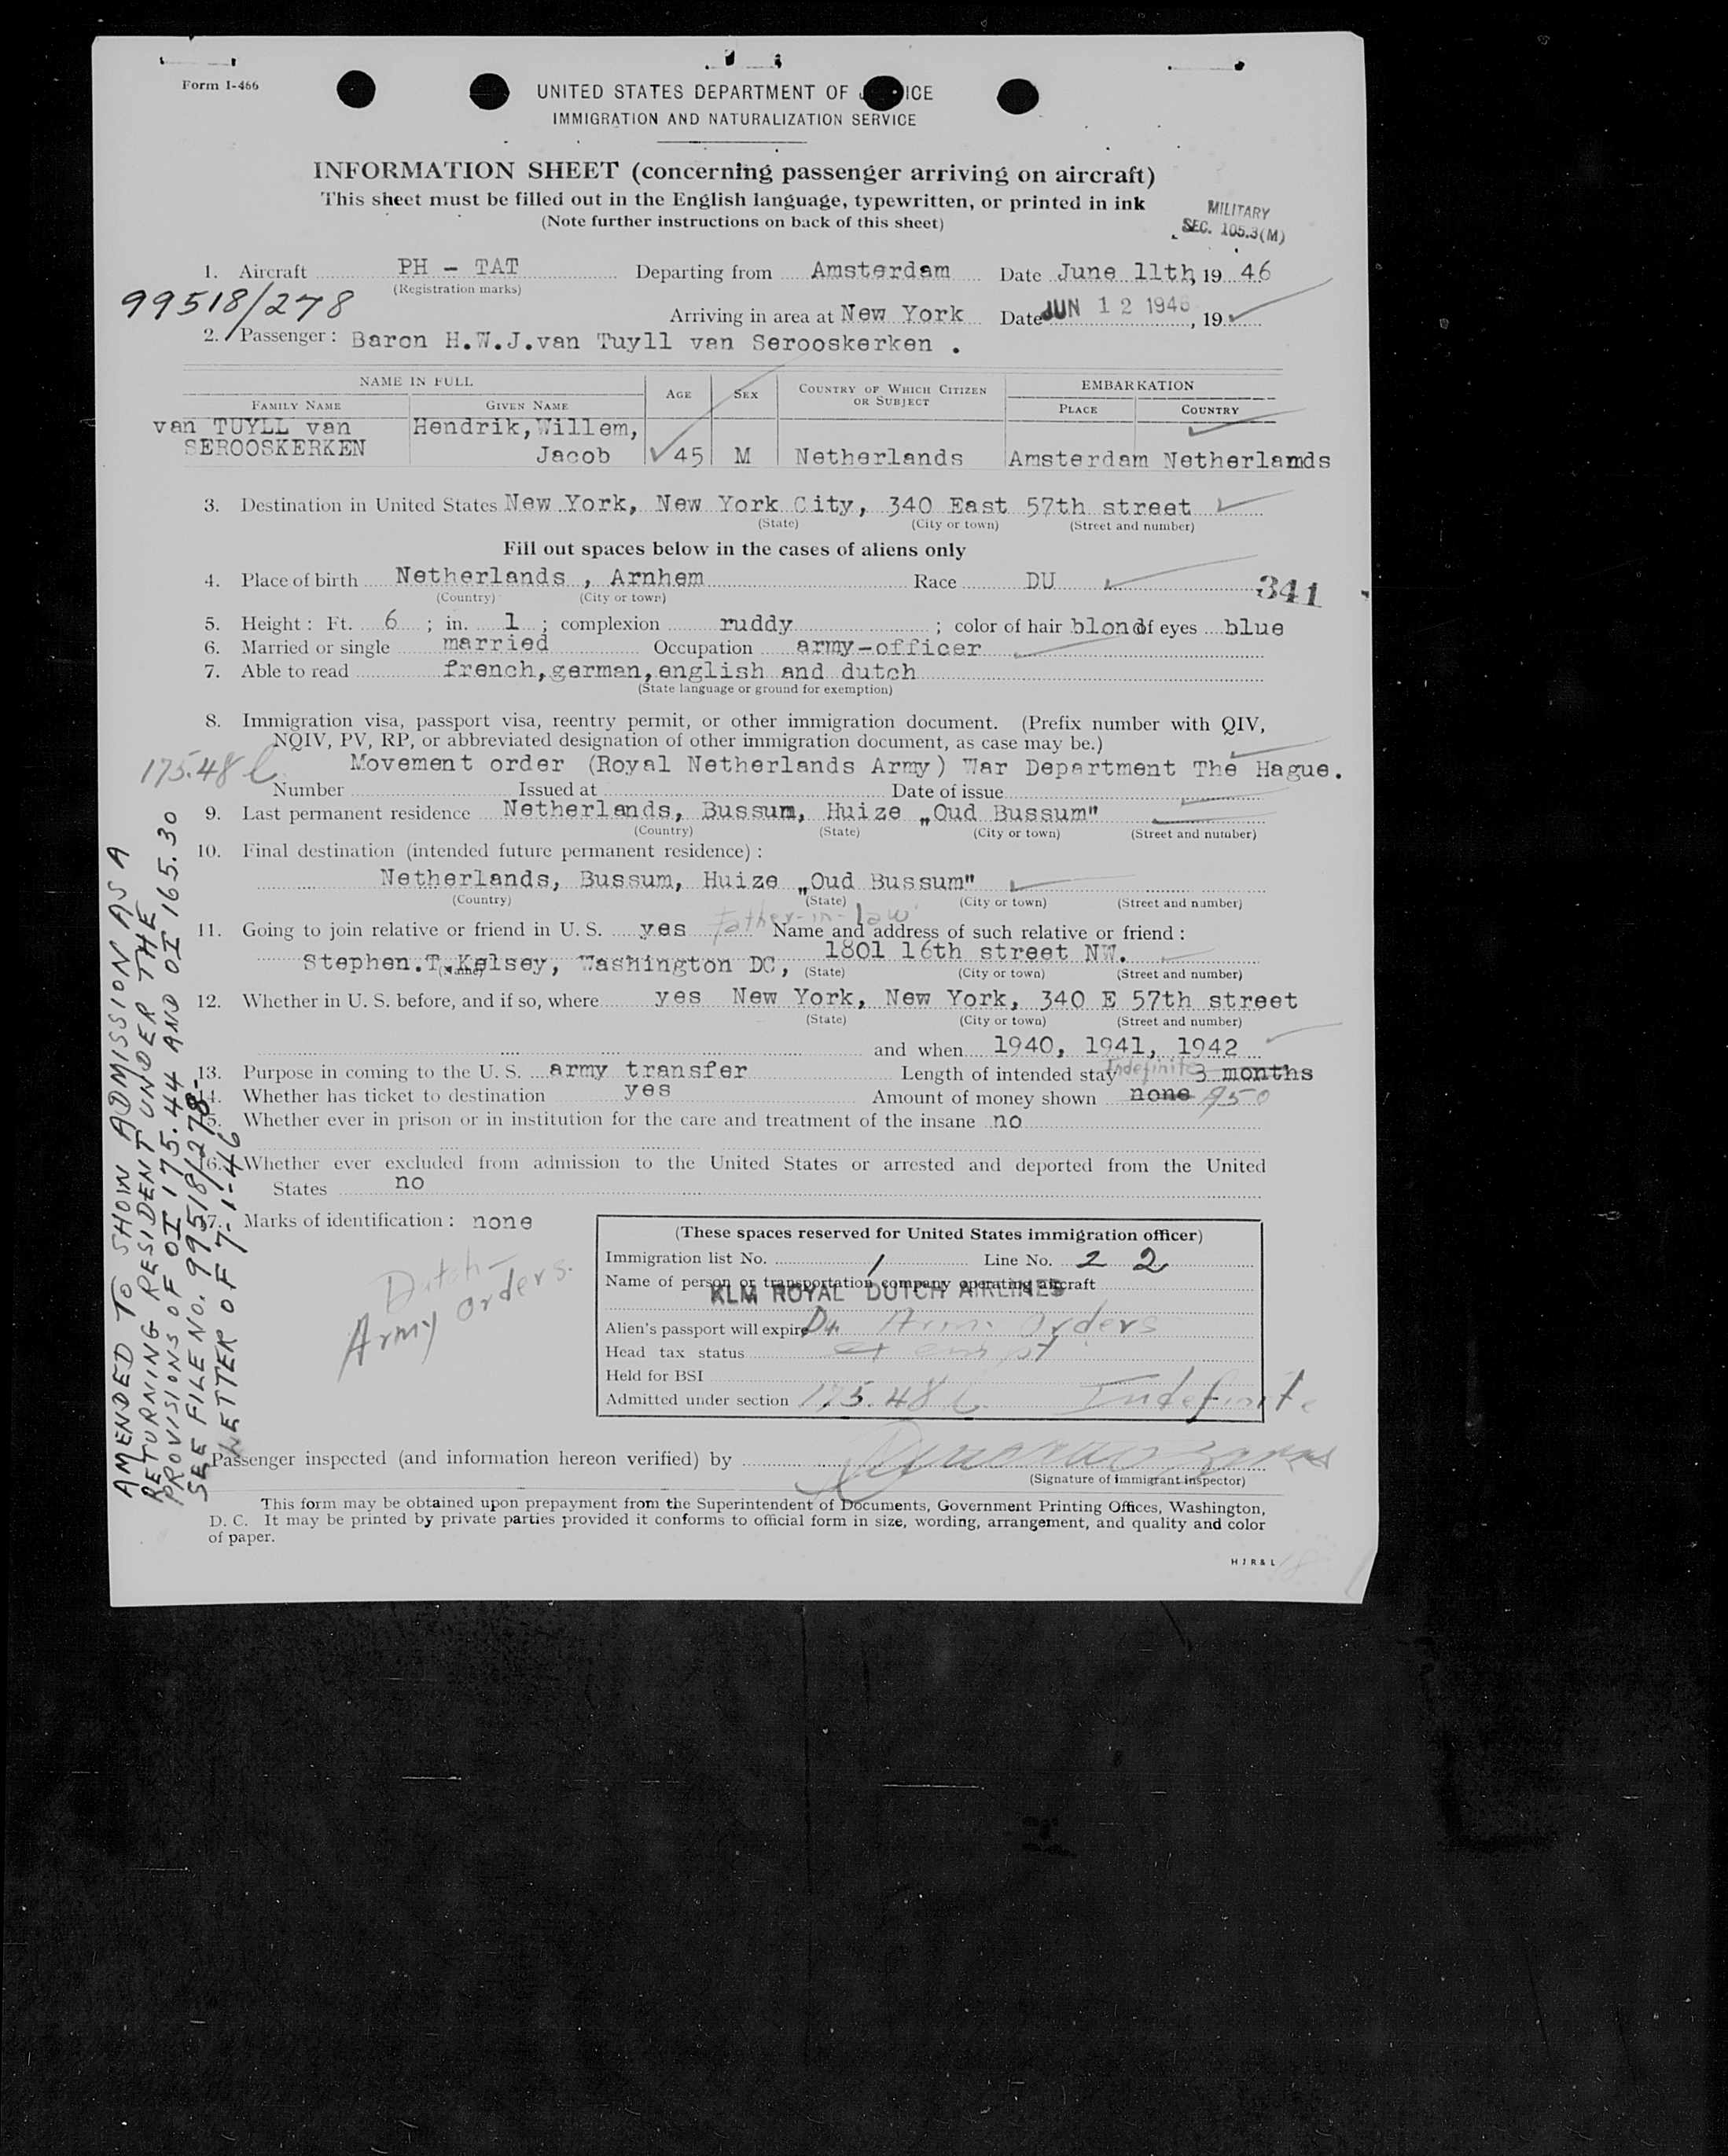 Form I-466
UNITED STATES DEPARTMENT OF J ICE
IMMIGRATION AND NATURALIZATION SERVICE
INFORMATION SHEET (concerning passenger arriving on aircraft)
This sheet must be filled out in the English language, typewritten, or printed in ink
(Note further instructions on back of this sheet)
MILITARY
SEC. 105.3(M)
1. Aircraft PH - TAT Departing from Amsterdam Date June 11th, 19 46
(Registration marks)
99518/278
Arriving in area at New York Date JUN 12 1946, 19
2. Passenger: Baron H.W.J.van Tuyll van Serooskerken .
NAME IN FULL AGE SEX COUNTRY OF WHICH CITIZEN OR SUBJECT EMBARKATION
FAMILY NAME GIVEN NAME PLACE COUNTRY
van TUYLL van Hendrik,Willem,
SEROOSKERKEN Jacob 45 M Netherlands Amsterdam Netherlands
3. Destination in United States New York, New York City, 340 East 57th street
(State) (City or town) (Street and number)
Fill out spaces below in the cases of aliens only
4. Place of birth Netherlands , Arnhem Race DU
341
(Country) (City or town)
5. Height: Ft. 6 ; in. 1 ; complexion ruddy ; color of hair blond of eyes blue
6. Married or single married Occupation army-officer
7. Able to read french,german,english and dutch
(State language or ground for exemption)
8. Immigration visa, passport visa, reentry permit, or other immigration document. (Prefix number with QIV,
NQIV, PV, RP, or abbreviated designation of other immigration document, as case may be.)
175.48 b Movement order (Royal Netherlands Army) War Department The Hague.
Number Issued at Date of issue
9. Last permanent residence Netherlands, Bussum, Huize „Oud Bussum"
(Country) (State) (City or town) (Street and number)
10. Final destination (intended future permanent residence):
Netherlands, Bussum, Huize „Oud Bussum"
(Country) (State) (City or town) (Street and number)
11. Going to join relative or friend in U. S. yes Father-in-law Name and address of such relative or friend:
Stephen.T.Kelsey, Washington DC, 1801 16th street NW.
(Name) (State) (City or town) (Street and number)
12. Whether in U. S. before, and if so, where yes New York, New York, 340 E 57th street
(State) (City or town) (Street and number)
and when 1940, 1941, 1942
13. Purpose in coming to the U. S. army transfer Length of intended stay Indefinite 3 months
14. Whether has ticket to destination yes Amount of money shown none 950
15. Whether ever in prison or in institution for the care and treatment of the insane no
16. Whether ever excluded from admission to the United States or arrested and deported from the United
States no
17. Marks of identification: none
Dutch-
Army orders.
(These spaces reserved for United States immigration officer)
Immigration list No. 1 Line No. 2 2
Name of person or transportation company operating aircraft
KLM ROYAL DUTCH AIRLINES
Alien's passport will expire Du. Army Orders
Head tax status exempt
Held for BSI
Admitted under section 175.48 b Indefinite
Passenger inspected (and information hereon verified) by
(Signature of immigrant inspector)
This form may be obtained upon prepayment from the Superintendent of Documents, Government Printing Offices, Washington,
D. C. It may be printed by private parties provided it conforms to official form in size, wording, arrangement, and quality and color
of paper.
H J R & L
AMENDED TO SHOW ADMISSION AS A
RETURNING RESIDENT UNDER THE
PROVISIONS OF OI 175.44 AND OI 165.30
SEE FILE NO. 99518/278-
LETTER OF 7-1-46